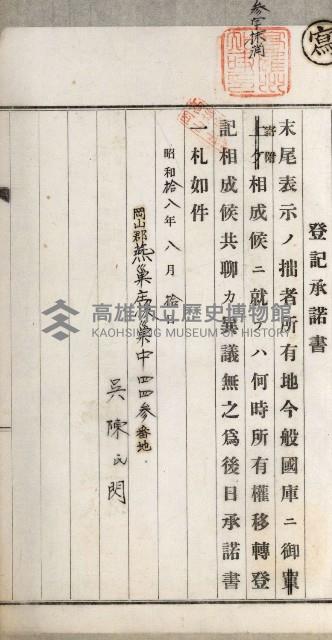 寫
参字抹消
登記承諾書
末尾表示ノ拙者所有地今般國庫ニ御買
寄附
上ケ相成候ニ就テハ何時所有權移轉登
記相成候共聊カ異議無之爲後日承諾書
一札如件
昭和拾八年八月拾日
岡山郡燕巢庄燕巢中四四参番地
吳陳氏閃
高雄市立歷史博物館
KAOHSIUNG MUSEUM OF HISTORY